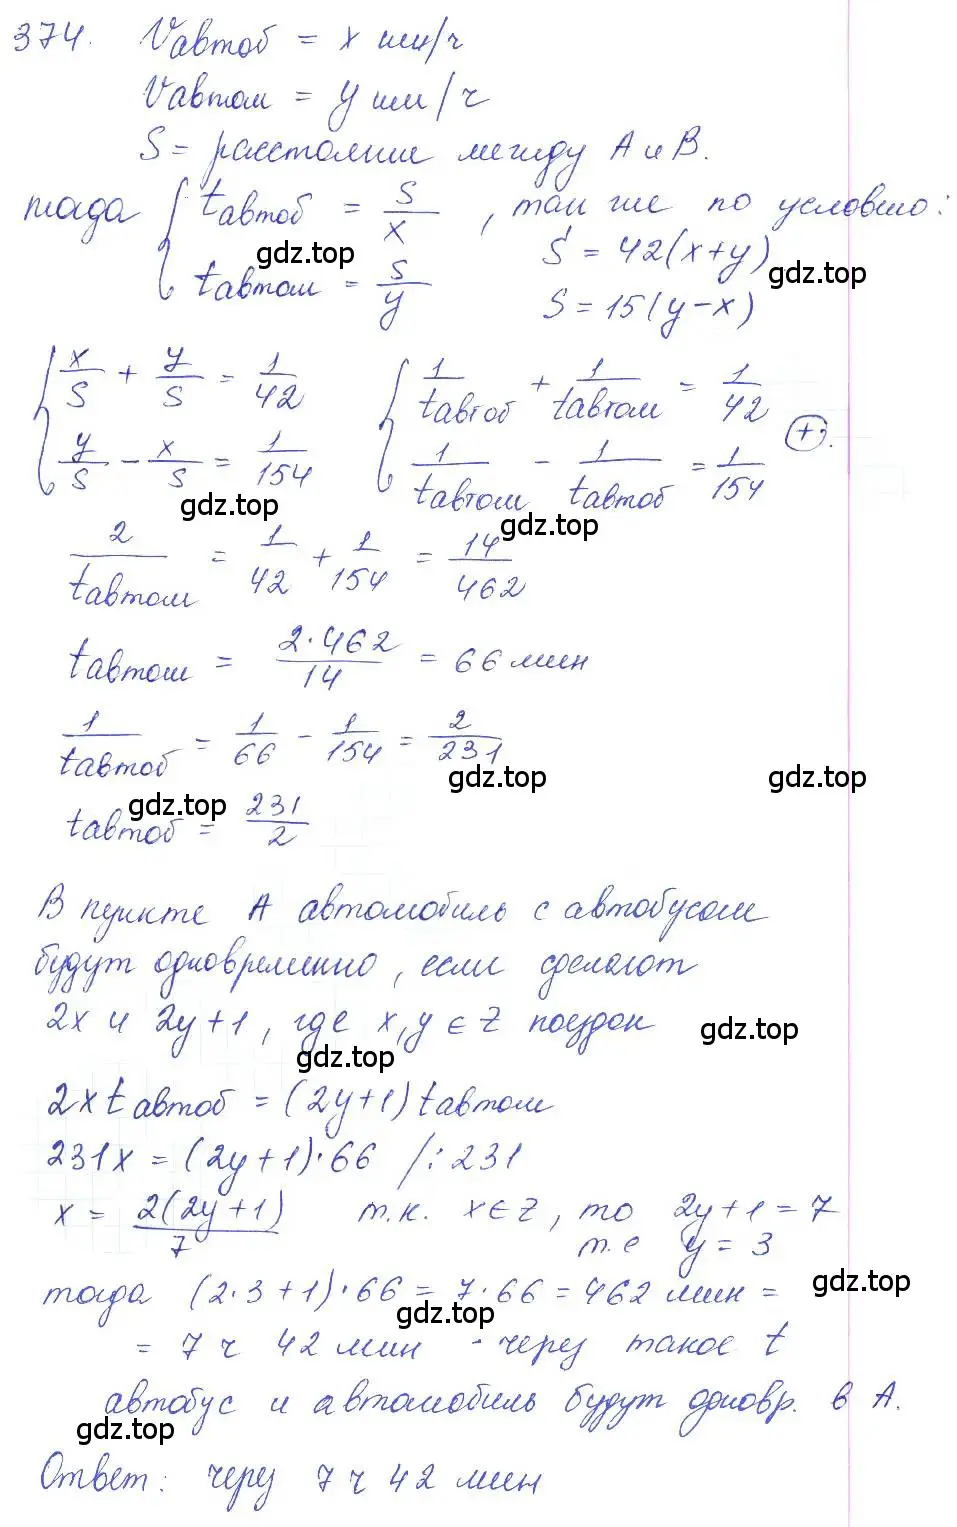 374. Vавтоб = x км/ч
Vавтом = y км/ч
S = расстояние между A и B.
тогда { tавтоб = S/x , так же по условию:
gdz.top
S = 42(x+y)
gdz.top
tавтом = S/y
S = 15(y-x)
{ x/S + y/S = 1/42 { 1/tавтоб + 1/tавтом = 1/42
(+).
y/S - x/S = 1/154 1/tавтом - 1/tавтоб = 1/154
gdz.top
gdz.top
2/tавтом = 1/42 + 1/154 = 14/462
tавтом = 2·462/14 = 66 мин
1/tавтоб = 1/66 - 1/154 = 2/231
gdz.top
gdz.top
gdz.top
tавтоб = 231/2
В пункте A автомобиль с автобусом
будут одновременно, если сделают
2x и 2y+1, где x,y ∈ Z поездок
gdz.top
gdz.top
2x tавтоб = (2y+1) tавтом
231x = (2y+1)·66 /:231
x = 2(2y+1)/7 т.к. x ∈ Z, то 2y+1 = 7
т.е y = 3
тогда (2·3+1)·66 = 7·66 = 462 мин =
gdz.top
gdz.top
= 7 ч 42 мин - через такое t
автобус и автомобиль будут одновр. в A.
gdz.top
Ответ: через 7 ч 42 мин